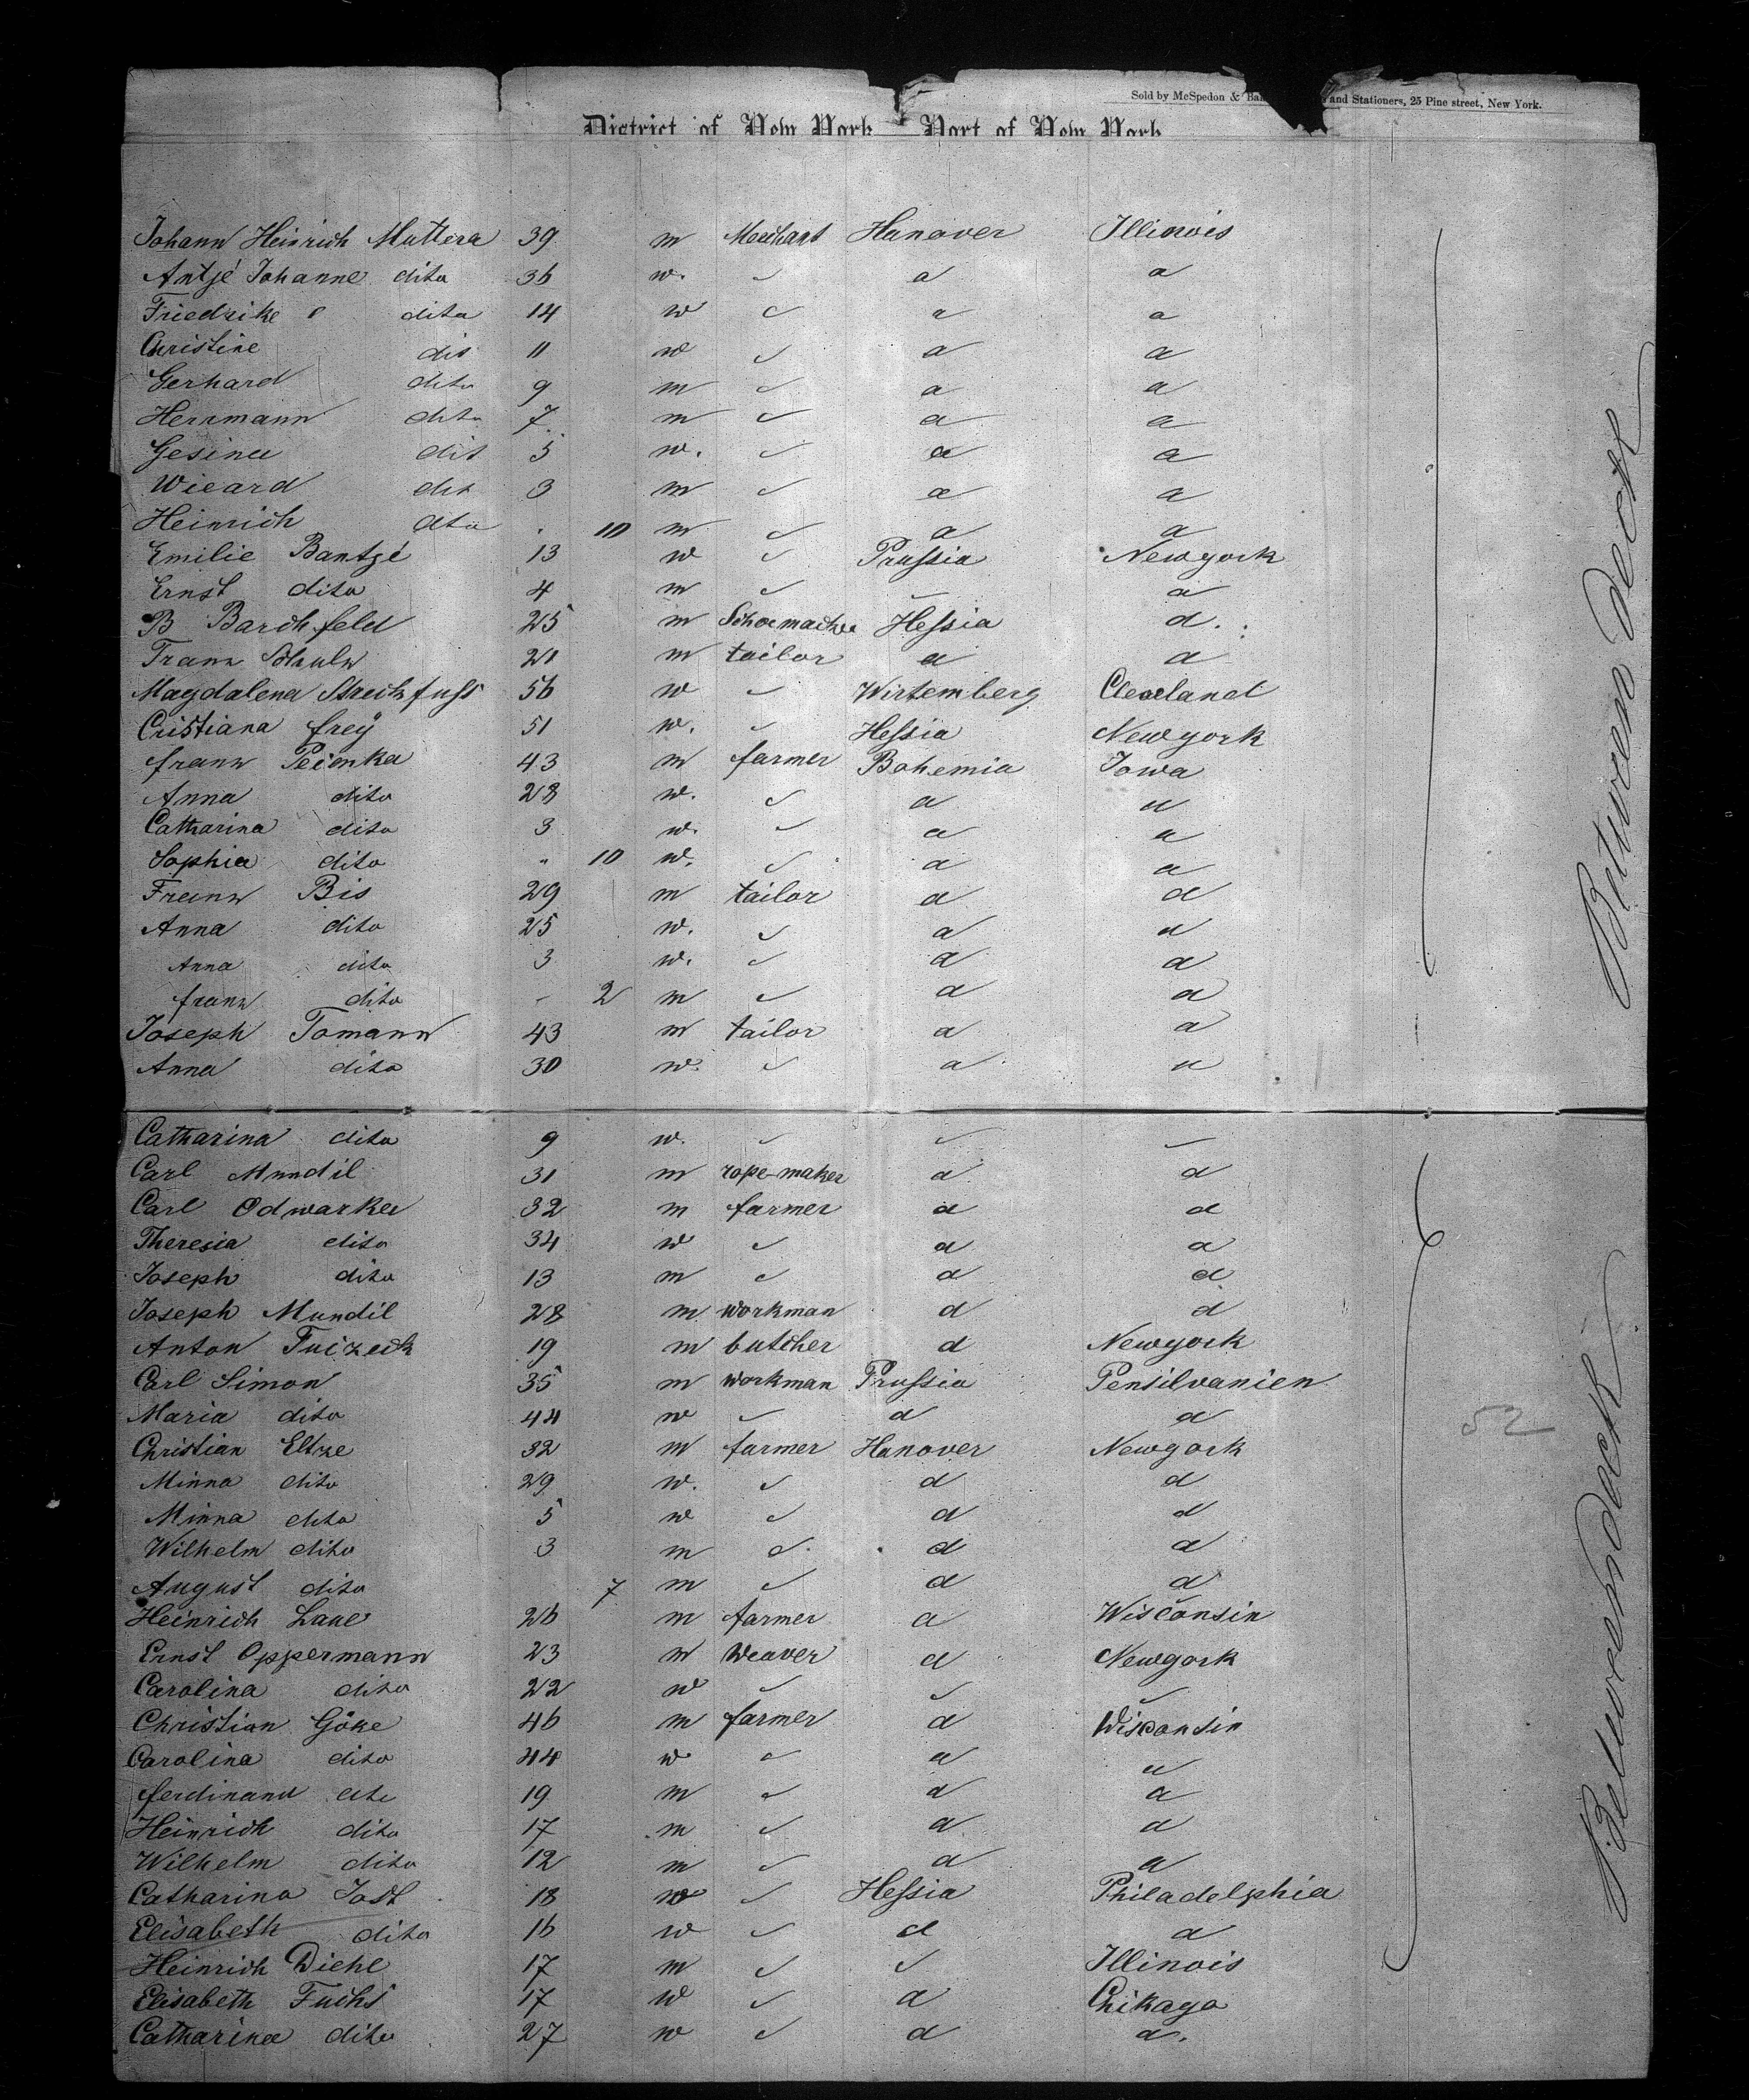 Sold by McSpedon & Ba and Stationers, 25 Pine street, New York.
District of New York Port of New York
Johann Heinrich Muttera 39 m Mechant Hanover Illinois
Antje Johanne dito 36 w. a a
Friedrike dito 14 w a a
Christine dit 11 w a a
Gerhard dito 9 m a a
Herrmann dito 7 m a a
Gesina dit 5 w. a a
Wieard dit 3 m a a
Heinrich dito 10 m a a
Emilie Bantje 13 w Prussia Newyork
Ernst dito 4 m a
B Barchfeld 25 m Schoemacher Hessia d.
Franz Schulz 21 m tailor a a
Magdalena Streckfuss 56 w Wirtemberg Cleveland
Cristiana frey 51 w. Hessia Newyork
franz Peimka 43 m farmer Bohemia Iowa
Anna dito 28 w. a a
Catharina dito 3 w. a a
Sophia dito " 10 w. a a
Franz Bis 29 m tailor a d
Anna dito 25 w. a a
Anna dito 3 w. a a
franz dito - 2 m a a
Joseph Tomann 43 m tailor a a
Anna dito 30 w. a a
Catharina dito 9 w.
Carl Mundil 31 m rope-maker a d
Carl Odwarka 32 m farmer a d
Theresia dito 34 w a a
Joseph dito 13 m a d
Joseph Mundil 28 m workman d d
Anton 19 m butcher d Newyork
Carl Simon 35 m workman Prussia Pensilvanien
Maria dito 44 w d d
Christian Eltze 32 m farmer Hanover Newyork
Minna dito 29 w. d d
Minna dito 5 w d d
Wilhelm dito 3 m d d
August dito 7 m d d
Heinrich Laue 26 m farmer a Wisconsin
Ernst Oppermann 23 m weaver d Newyork
Carolina dito 22 w
Christian Göke 46 m farmer d Wisconsin
Carolina dito 44 w a a
ferdinand dito 19 m d a
Heinrich dito 17 m a d
Wilhelm dito 12 m d a
Catharina Jost 18 w Hessia Philadelphia
Elisabeth dito 16 w d d
Heinrich Diehl 17 m Illinois
Elisabeth Fuchs 17 w a Chikago
Catharina dito 27 w d d.
Between Deck
52
Between Deck